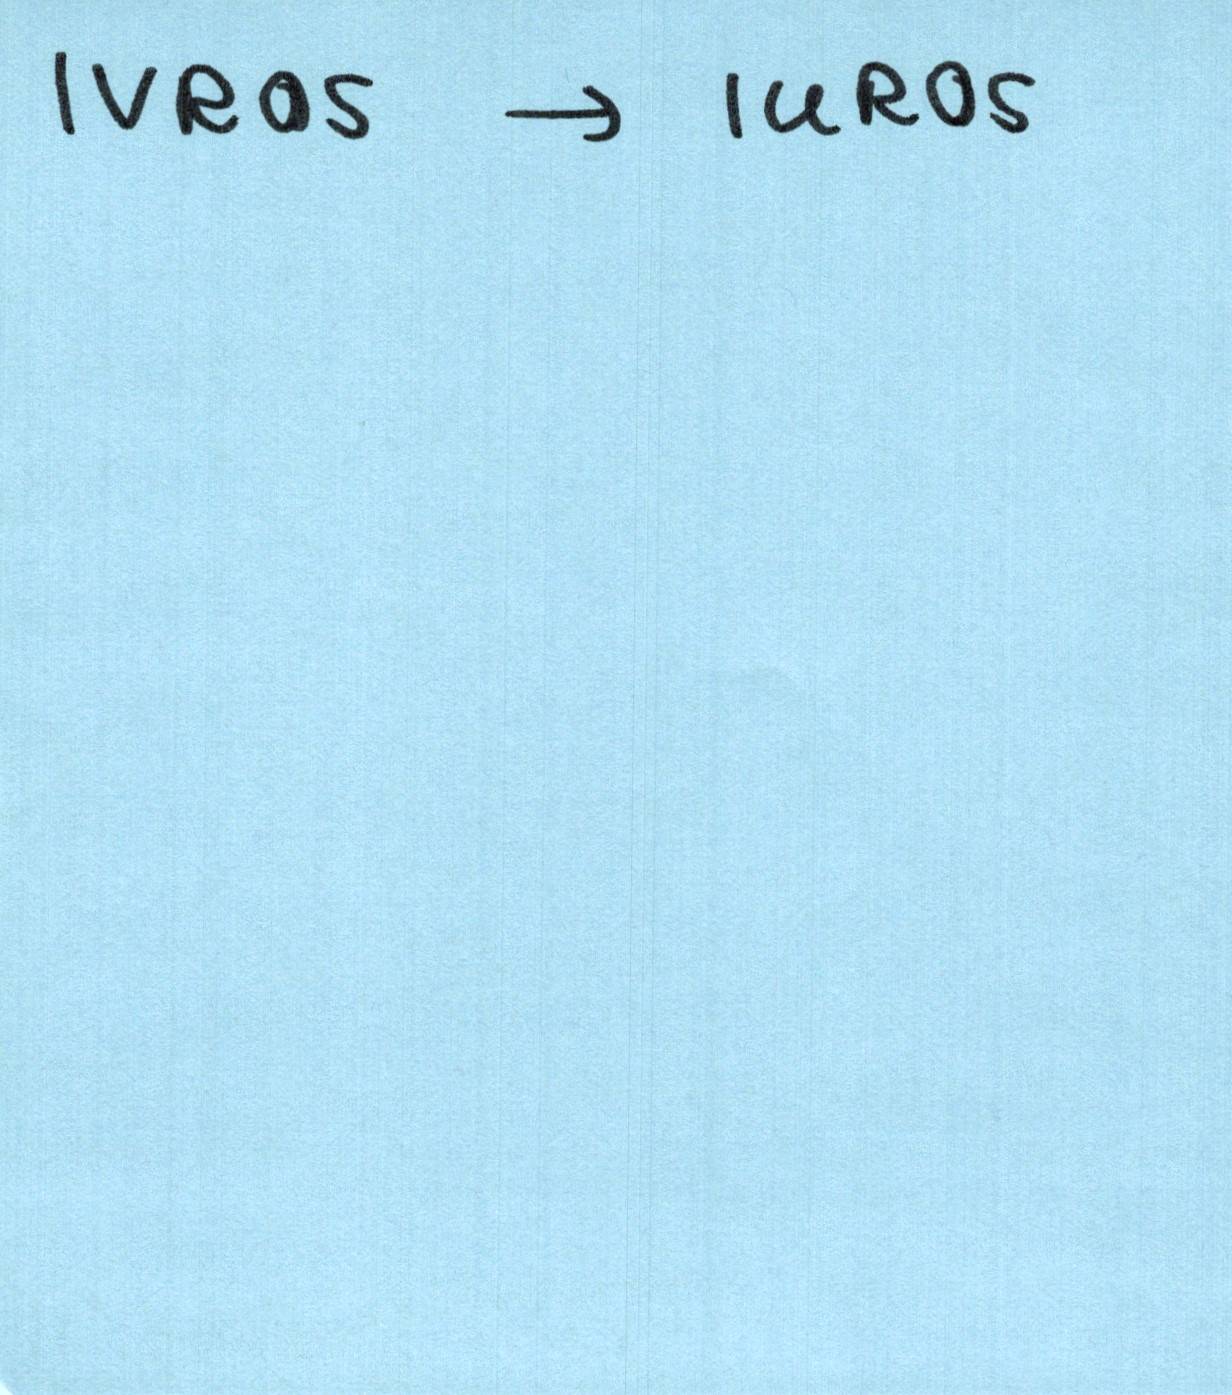 IVROS → IuROS